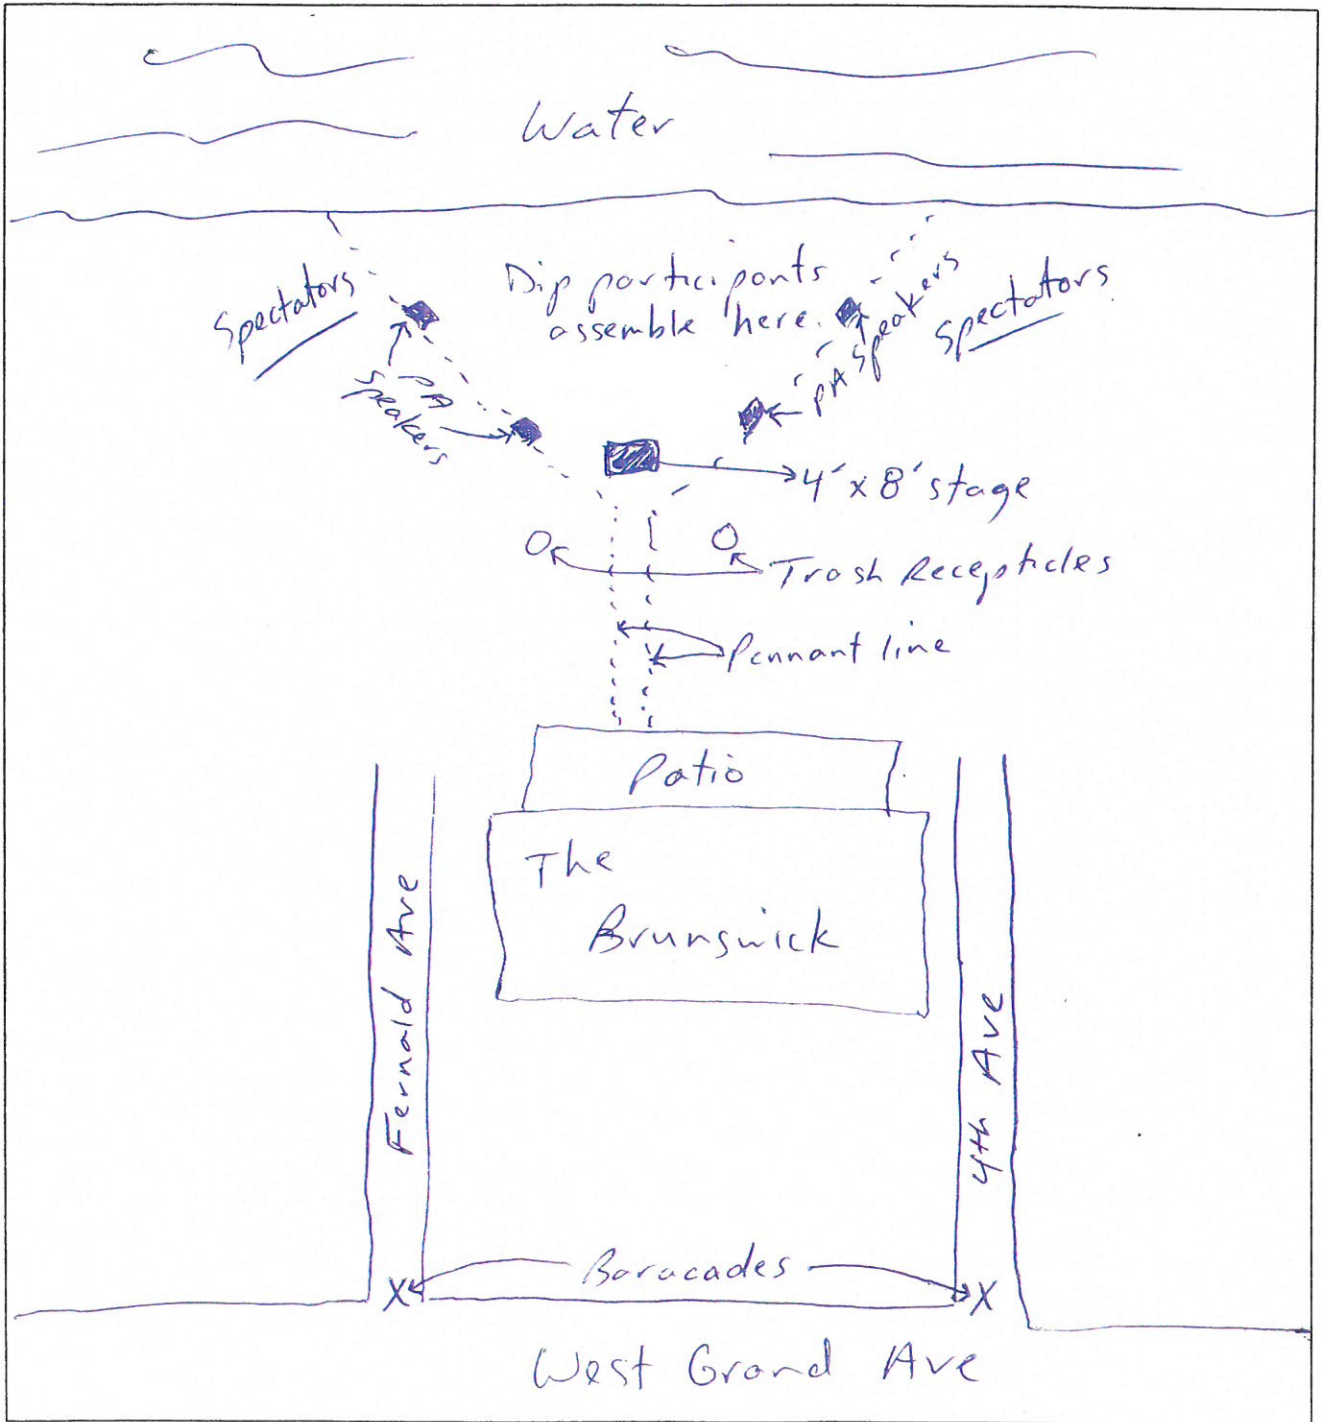 Water
Spectators
Dip participants
assemble here.
PA Speakers
Spectators
PA
Speakers
4' x 8' stage
Trash Recepticles
Pennant line
Patio
The
Brunswick
Fernald Ave
4th Ave
Baracades
X
X
West Grand Ave